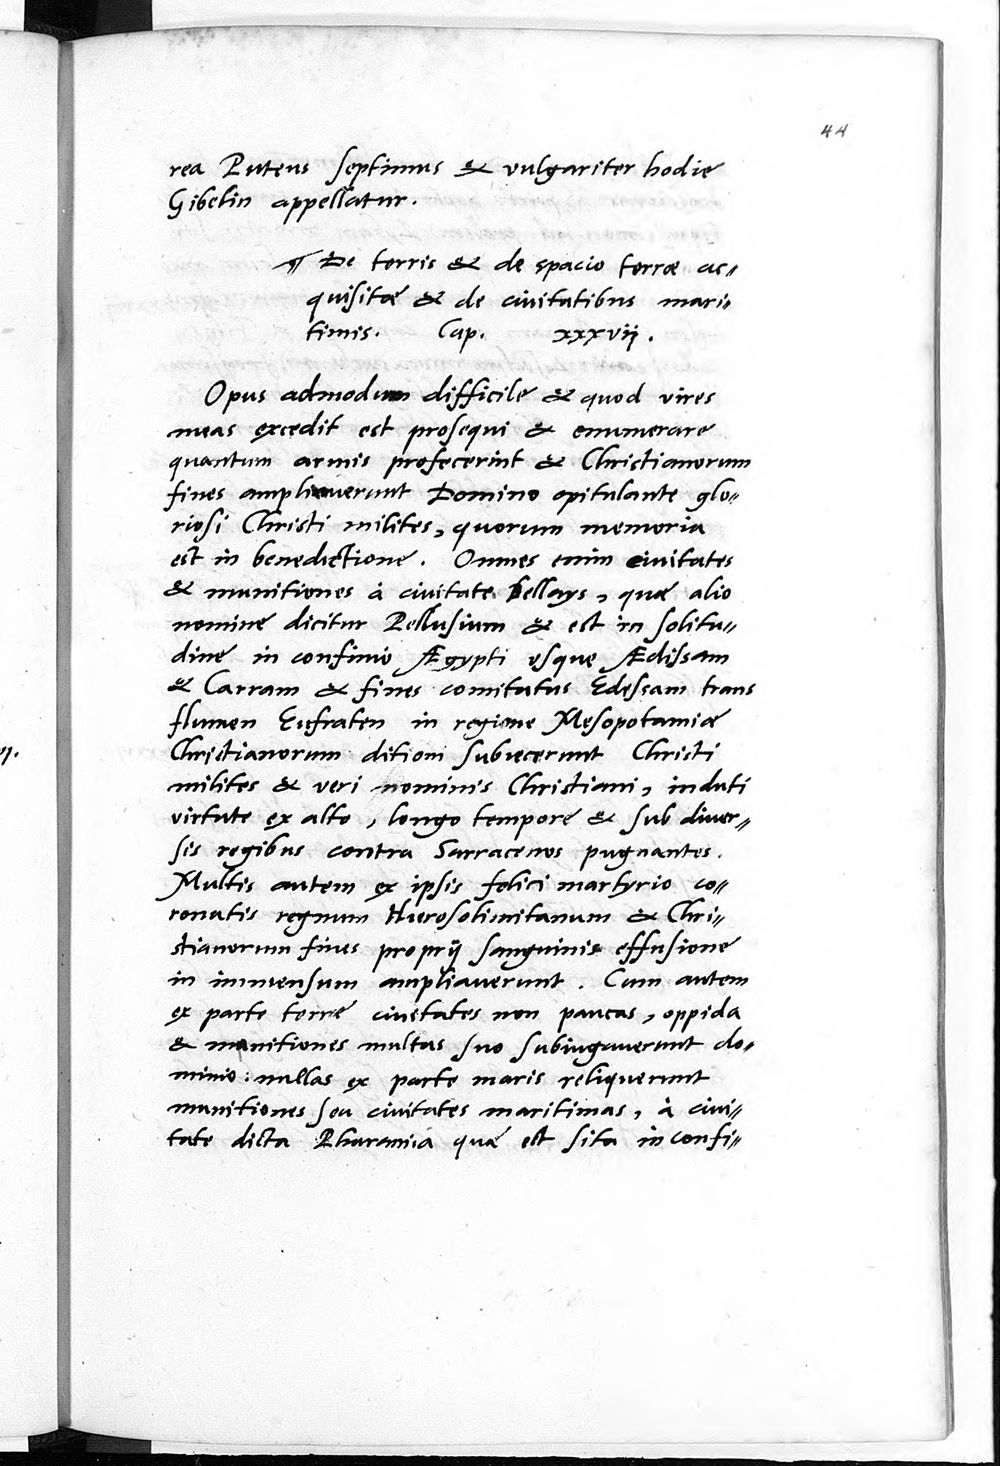 44
rea Puteus septimus & vulgariter hodie
Gibelin appellatur.
¶ De terris & de spacio terræ ac„
quisitæ & de civitatibus mari„
timis. Cap. xxxvij.
Opus admodum difficile & quod vires
meas excedit est prosequi & enumerare
quantum armis profecerint & Christianorum
fines ampliaverunt Domino opitulante glo„
riosi Christi milites, quorum memoria
est in benedictione. Omnes enim civitates
& munitiones à civitate Bellays, quæ alio
nomine dicitur Pellusium & est in solitu„
dine in confinio Ægypti usque Ædissam
& Carram & fines comitatus Edessam trans
flumen Eufraten in regione Mesopotamiæ
Christianorum ditioni subiecerunt Christi
milites & veri nominis Christiani, induti
virtute ex alto, longo tempore & sub diver„
sis regibus contra Sarracenos pugnantes.
Multis autem ex ipsis felici martyrio co„
ronatis regnum Hierosolimitanum & Chri„
stianorum fines proprij sanguinis effusione
in immensum ampliaverunt. Cum autem
ex parte terræ civitates non paucas, oppida
& munitiones multas suo subiugaverunt do„
minio: nullas ex parte maris reliquerunt
munitiones seu civitates maritimas, à civi„
tate dicta Pharamia quæ est sita in confi„